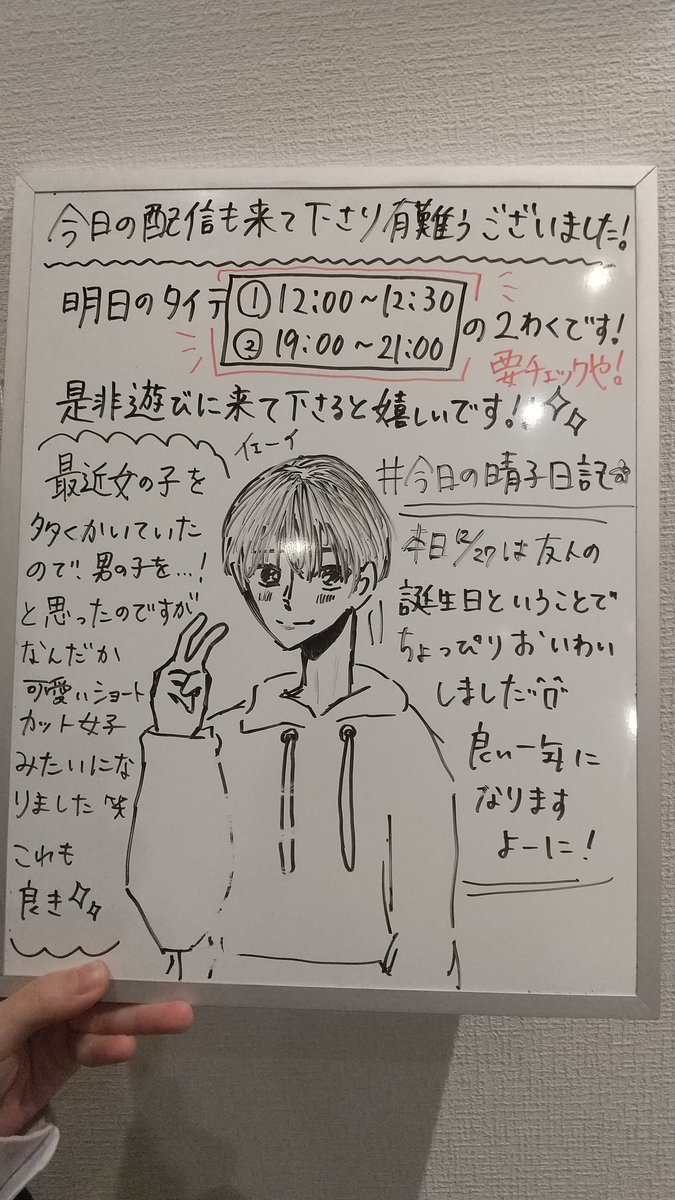 今日の配信も来て下さり有難うございました!
明日のタイテ ①12:00～12:30
②19:00～21:00 の2わくです!
要チェックや!
是非遊びに来て下さると嬉しいです!!
イエーイ
最近女の子を
多くかいていた
ので、男の子を…!
と思ったのですが
なんだか
可愛いショート
カット女子
みたいにな
りました笑
これも
良き
#今日の晴子日記
本日12/27は友人の
誕生日ということで
ちょっぴりおいわい
しました
良い一年に
なります
よーに!